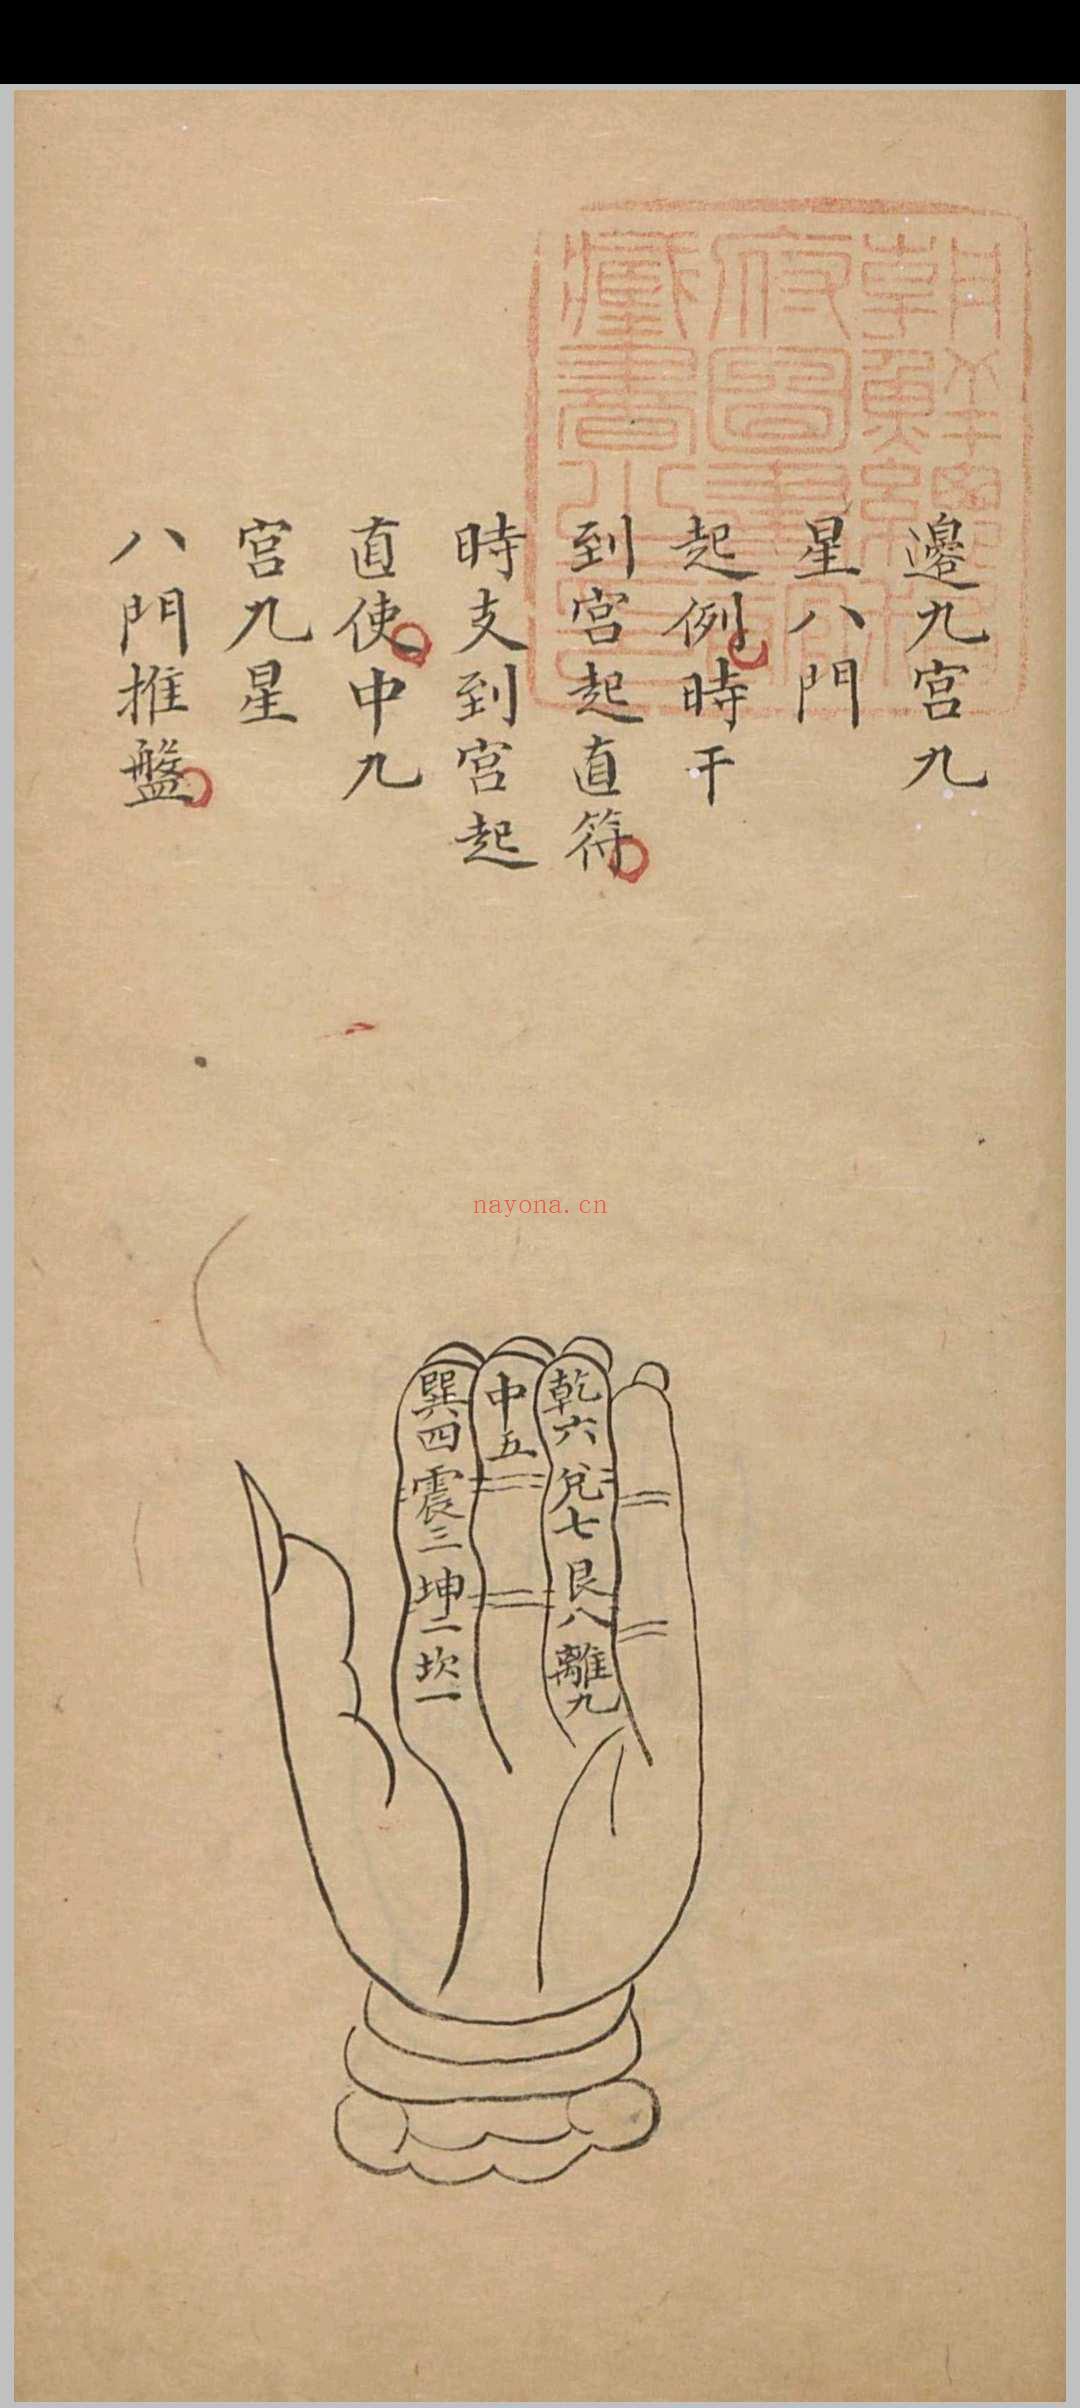 邊九宮九
星八門
起例時干
到宮起直符
時支到宮起
直使中九
宮九星
八門推盤
nayona.cn
乾六兌七艮八離九
中五
巽四震三坤二坎一